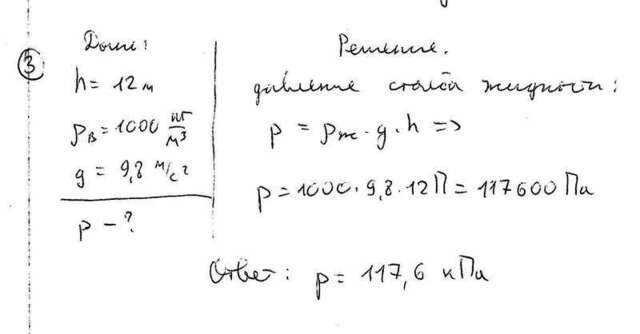 3
Дано:
h = 12 м
ρв = 1000 кг/м³
g = 9,8 м/с²
p - ?
Решение.
давление столба жидкости:
p = ρж · g · h =>
p = 1000 · 9,8 · 12 П = 117600 Па
Ответ: p = 117,6 кПа